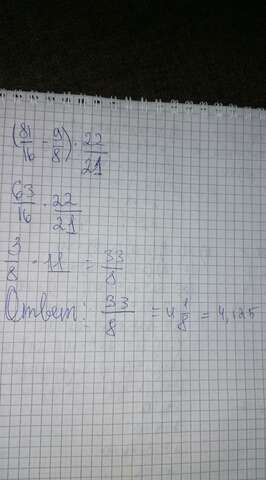 (81/16 - 9/8) · 22/21
63/16 · 22/21
3/8 · 11 = 33/8
Ответ: 33/8 = 4 1/8 = 4,125